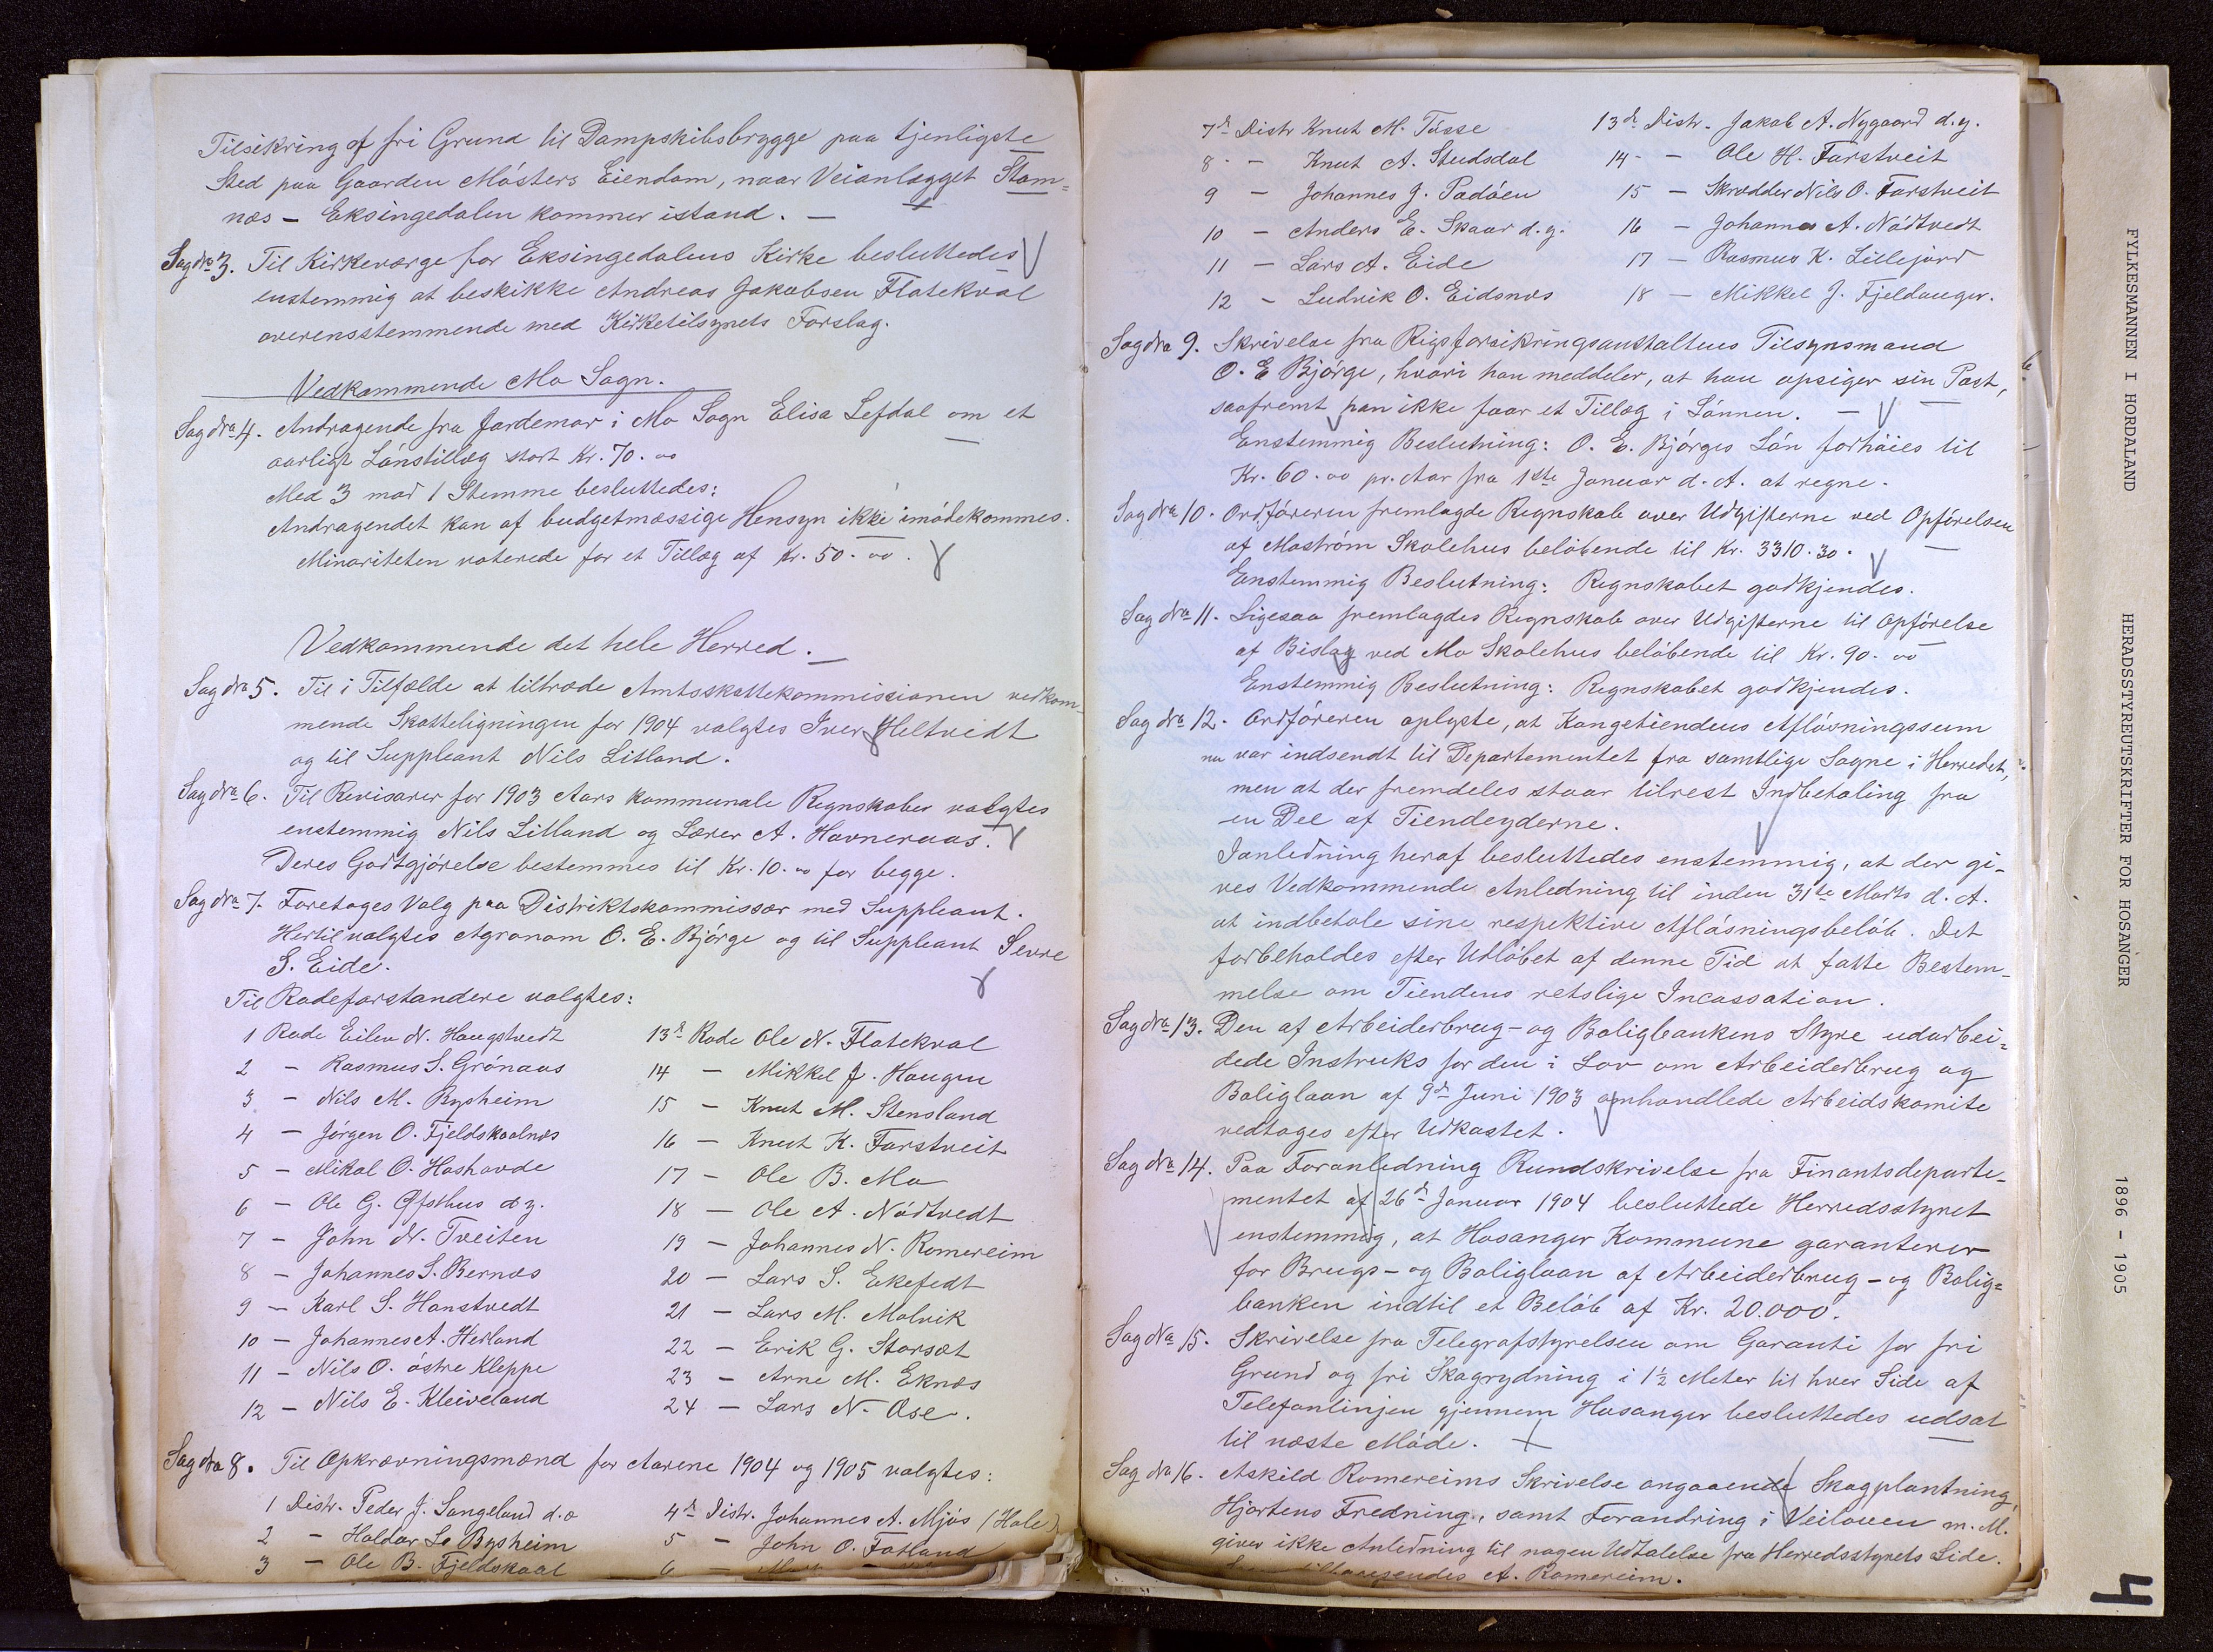 Tilsikring af fri Grund til Dampskibsbrygge paa tjenligste
Sted paa Gaarden Mósters Eiendom, naar Veianlægget Stam-
næs - Eksingedalen kommer istand. -
Sag No 3. Til Kirkeværge for Eksingedalens Kirke besluttedes
enstemmig at beskikke Andreas Jakobsen Flatekval
overensstemmende med Kirketilsynets Forslag.
Vedkommende Mo Sogn.
Sag No 4. Andragende fra Jordemor i Mo Sogn Elisa Lefdal om et
aarligt Lónstillæg stort Kr. 70.00
Med 3 mod 1 Stemme besluttedes:
Andragendet kan af budgetmæssige Hensyn ikke imódekommes.
Minoriteten voterede for et Tillæg af Kr. 50.00.
Vedkommende det hele Herred.
Sag No 5. Til i Tilfælde at tiltræde Amtsskattekommissionen vedkom-
mende Skatteligningen for 1904 valgtes Iver Heltvedt
og til Suppleant Nils Litland.
Sag No 6. Til Revisorer for 1903 Aars kommunale Regnskaber valgtes
enstemmig Nils Litland og Lærer A. Hovneraas.
Deres Godtgjórelse bestemmes til Kr. 10.00 for begge.
Sag No 7. Foretages Valg paa Distriktskommissær med Suppleant.
Hertil valgtes Agronom O. E. Bjórge og til Suppleant Sevre
S. Eide.
Til Rodeforstandere valgtes:
1 Rode Eilev N. Haugstvedt
2 - Rasmus S. Grónaas
3 - Nils M. Bysheim
4 - Jórgen O. Fjeldskaalnæs
5 - Mikal O. Hoshovde
6 - Ole G. Ofsthus d.y.
7 - John N. Tveiten
8 - Johannes S. Bernæs
9 - Karl S. Hanstvedt
10 - Johannes A. Herland
11 - Nils O. óstre Kleppe
12 - Nils E. Kleiveland
13de Rode Ole N. Flatekval
14 - Mikkel J. Haugen
15 - Knut M. Stensland
16 - Knut K. Farstveit
17 - Ole B. Mo
18 - Ole A. Nódtvedt
19 - Johannes N. Romereim
20 - Lars S. Eekefedt
21 - Lars M. Malvik
22 - Erik G. Storsæt
23 - Arne M. Eknæs
24 - Lars N. Ose.
Sag No 8. Til Opkrævningsmænd for Aarene 1904 og 1905 valgtes:
1 Distr. Peder J. Langeland d.æ
2 - Haldor L. Bysheim
3 - Ole B. Fjeldskaal
4de Distr. Johannes A. Mjós (Hole)
5 - John O. Fatland
6 -
7de Distr Knut M. Tósse
8 - Knut A. Studsdal
9 - Johannes J. Padóen
10 - Anders E. Skaar d.y.
11 - Lars A. Eide
12 - Ludvik O. Eidsnæs
13de Distr. Jakob A. Nygaard d.y.
14 - Ole H. Farstveit
15 - Skrædder Nils O. Farstveit
16 - Johannes A. Nódtvedt
17 - Rasmus K. Lillejord
18 - Mikkel J. Fjeldanger.
Sag No 9. Skrivelse fra Rigsforsikringsanstaltens Tilsynsmand
O. E Bjórge, hvori han meddeler, at han opsiger sin Post,
saafremt han ikke faar et Tillæg i Lónnen. -
Enstemmig Beslutning: O. E. Bjórges Lón forhóies til
Kr. 60.00 pr. Aar fra 1ste Januar d. A. at regne.
Sag No 10. Ordfóreren fremlagde Regnskab over Udgifterne ved Opfórelsen
af Mostróm Skolehus belóbende til Kr. 3310.30.
Enstemmig Beslutning: Regnskabet godkjendes.
Sag No 11. Ligesaa fremlagdes Regnskab over Udgifterne til Opfórelse
af Bislag ved Mo Skolehus belóbende til Kr. 90.00
Enstemmig Beslutning: Regnskabet godkjendes.
Sag No 12. Ordfóreren oplyste, at Kongetiendens Aflósningssum
nu var indsendt til Departementet fra samtlige Sogne i Herredet,
men at der fremdeles staar tilrest Indbetaling fra
en Del af Tiendeyderne.
Ianledning heraf besluttedes enstemmig, at der gi-
ves Vedkommende Anledning til inden 31te Marts d. A.
at indbetale sine respektive Aflósningsbelób. Det
forbeholdes efter Udlóbet af denne Tid at fatte Bestem-
melse om Tiendens retslige Incassation.
Sag No 13. Den af Arbeiderbrug- og Boligbankens Styre udarbei-
dede Instruks for den i Lov om Arbeiderbrug og
Boliglaan af 9de Juni 1903 omhandlede Arbeidskomite
vedtages efter Udkastet.
Sag No 14. Paa Foranledning Rundskrivelse fra Finantsdeparte-
mentet af 26de Januar 1904 besluttede Herredsstyret
enstemmig, at Hosanger Kommune garanterer
for Brugs- og Boliglaan af Arbeiderbrug- og Bolig-
banken indtil et Belób af Kr. 20.000.
Sag No 15. Skrivelse fra Telegrafstyrelsen om Garanti for fri
Grund og fri Skogrydning i 1½ Meter til hver Side af
Telefonlinjen gjennem Hosanger besluttedes udsat
til næste Móde.
Sag No 16. Askild Romereims Skrivelse angaaende Skogplantning,
Hjortens Fredning, samt Forandring i Veiloven m. M.
giver ikke Anledning til nogen Udtalelse fra Herredsstyrets Side.
A. Romereim.
FYLKESMANNEN I HORDALAND HERADSSTYREUTSKRIFTER FOR HOSANGER 1896 - 1905
4